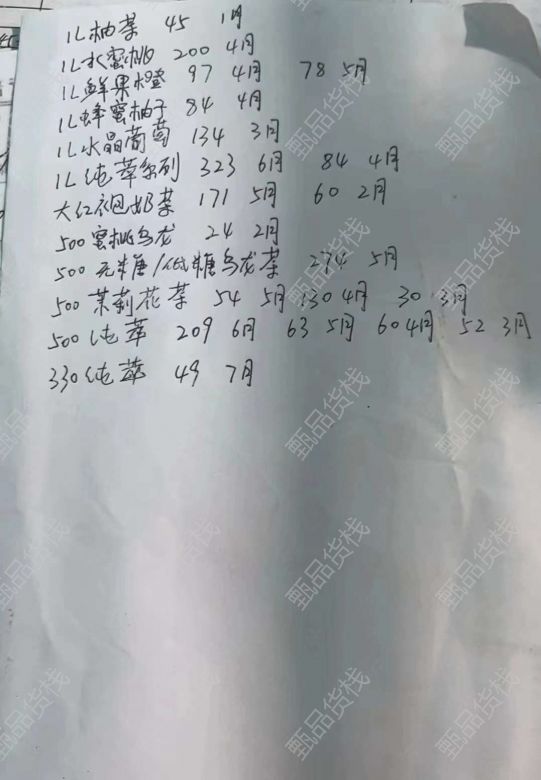 1L柚茶 45 1月
1L水蜜桃 200 4月
1L鲜果橙 97 4月 78 5月
1L蜂蜜柚子 84 4月
1L水晶葡萄 134 3月
1L纯萃系列 323 6月 84 4月
大红袍奶茶 171 5月 60 2月
500蜜桃乌龙 24 2月
500无糖/低糖乌龙茶 274 5月
500茉莉花茶 54 5月 130 4月 30 3月
500纯萃 209 6月 63 5月 60 4月 52 3月
330纯萃 49 7月
甄品货栈